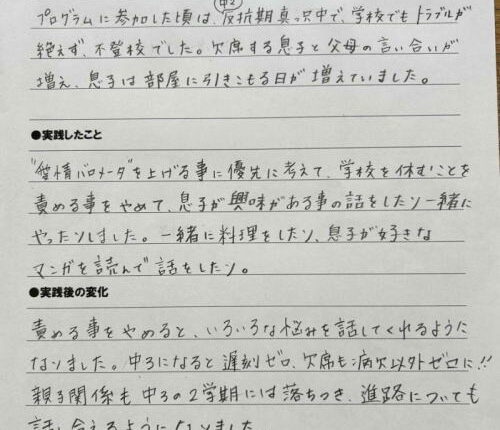 中2
プログラムに参加した頃は、反抗期真っ只中で、学校でもトラブルが
絶えず、不登校でした。欠席する息子と父母の言い合いが
増え、息子は部屋に引きこもる日が増えていました。
●実践したこと
"愛情バロメータ"を上げる事に優先に考えて、学校を休むことを
責める事をやめて、息子が興味がある事の話をしたり一緒に
やったりしました。一緒に料理をしたり、息子が好きな
マンガを読んで話をしたり。
●実践後の変化
責める事をやめると、いろいろな悩みを話してくれるように
なりました。中3になると遅刻ゼロ、欠席も病欠以外ゼロに!!
親子関係も中3の2学期には落ちつき、進路についても
話し合えるようになりました